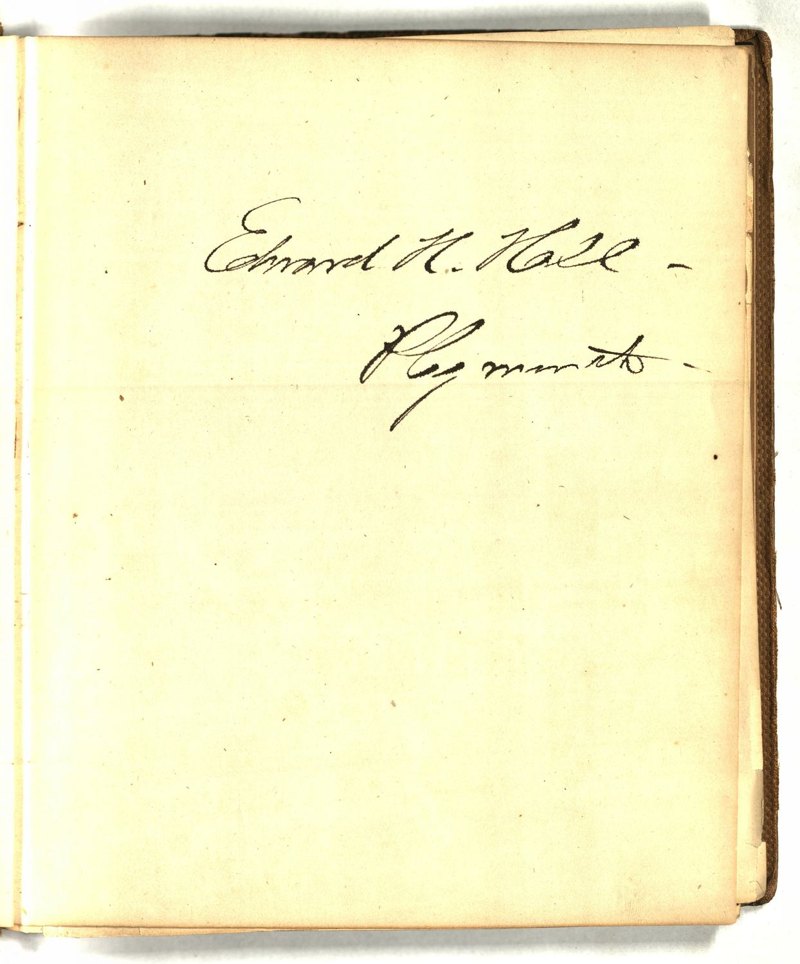 Edward H. Hall –
Plymouth –